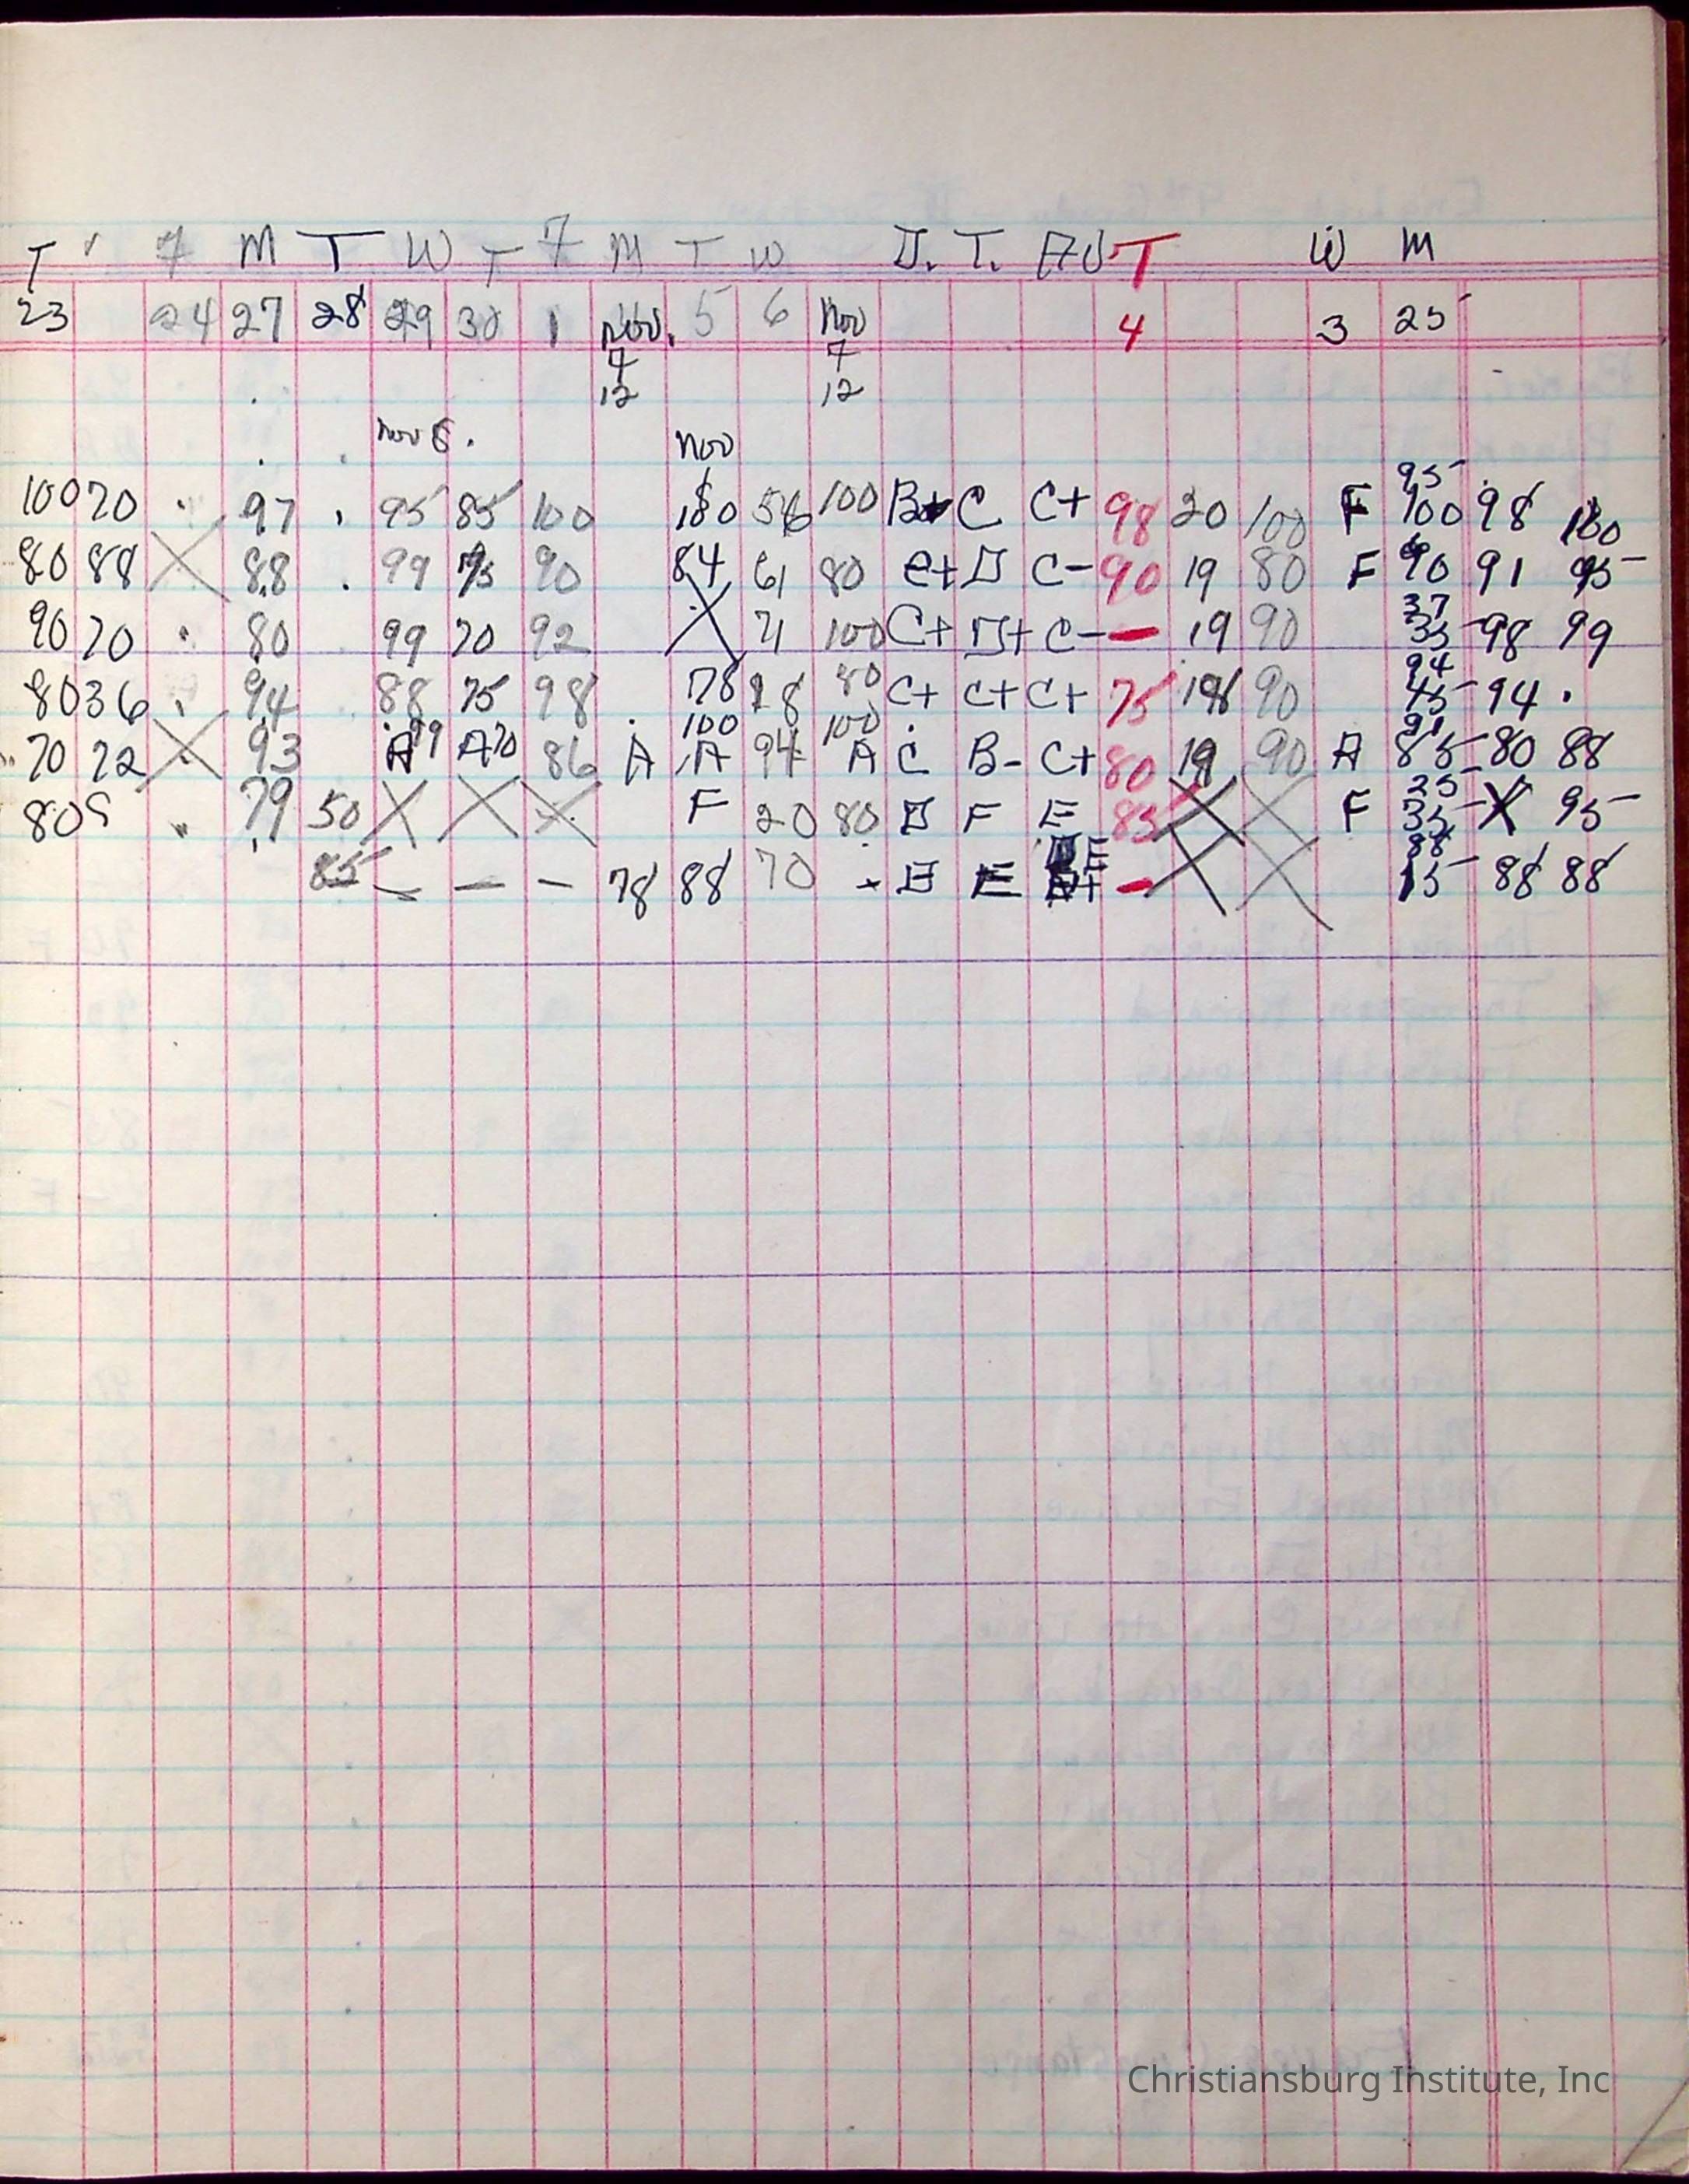 T F M T W T F M T W D. T. AV T W M
23 24 27 28 29 30 1 Nov. 5 6 Nov 4 3 25
7 7
12 12
Nov 8. Nov
95
100 70 . 97 . 95 85 100 100 56 100 B+ C C+ 98 20 100 F 100 98 100
80 88 X 88 . 99 75 90 84 61 80 C+ D C- 90 19 80 F 90 91 95
37
90 70 . 80 . 99 70 92 X 71 100 C+ D+ C- — 19 90 35 98 99
94
80 36 . 94 . 88 75 98 78 18 80 C+ C+ C+ 75 198 90 45 94 .
99 70 100 100 91
70 72 X 93 A A 86 A A 94 A C B- C+ 80 19 90 A 85 80 88
25
80 . 79 50 X X X F 20 80 D F E 85 X X F 35 X 95
E 88
85 — — — 78 88 70 - E E — X X 15 88 88
Christiansburg Institute, Inc